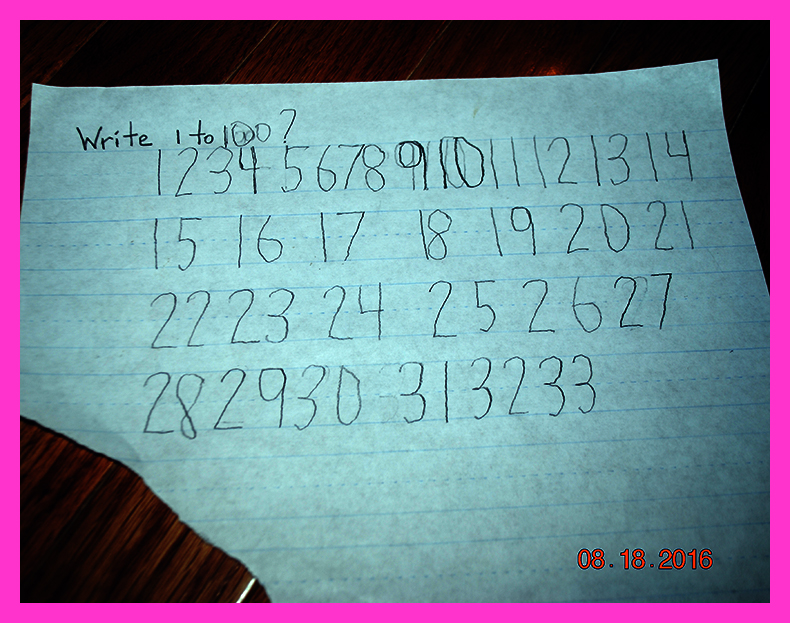 Write 1 to 1000?
1 2 3 4 5 6 7 8 9 10 11 12 13 14
15 16 17 18 19 20 21
22 23 24 25 26 27
28 29 30 31 32 33
08.18.2016